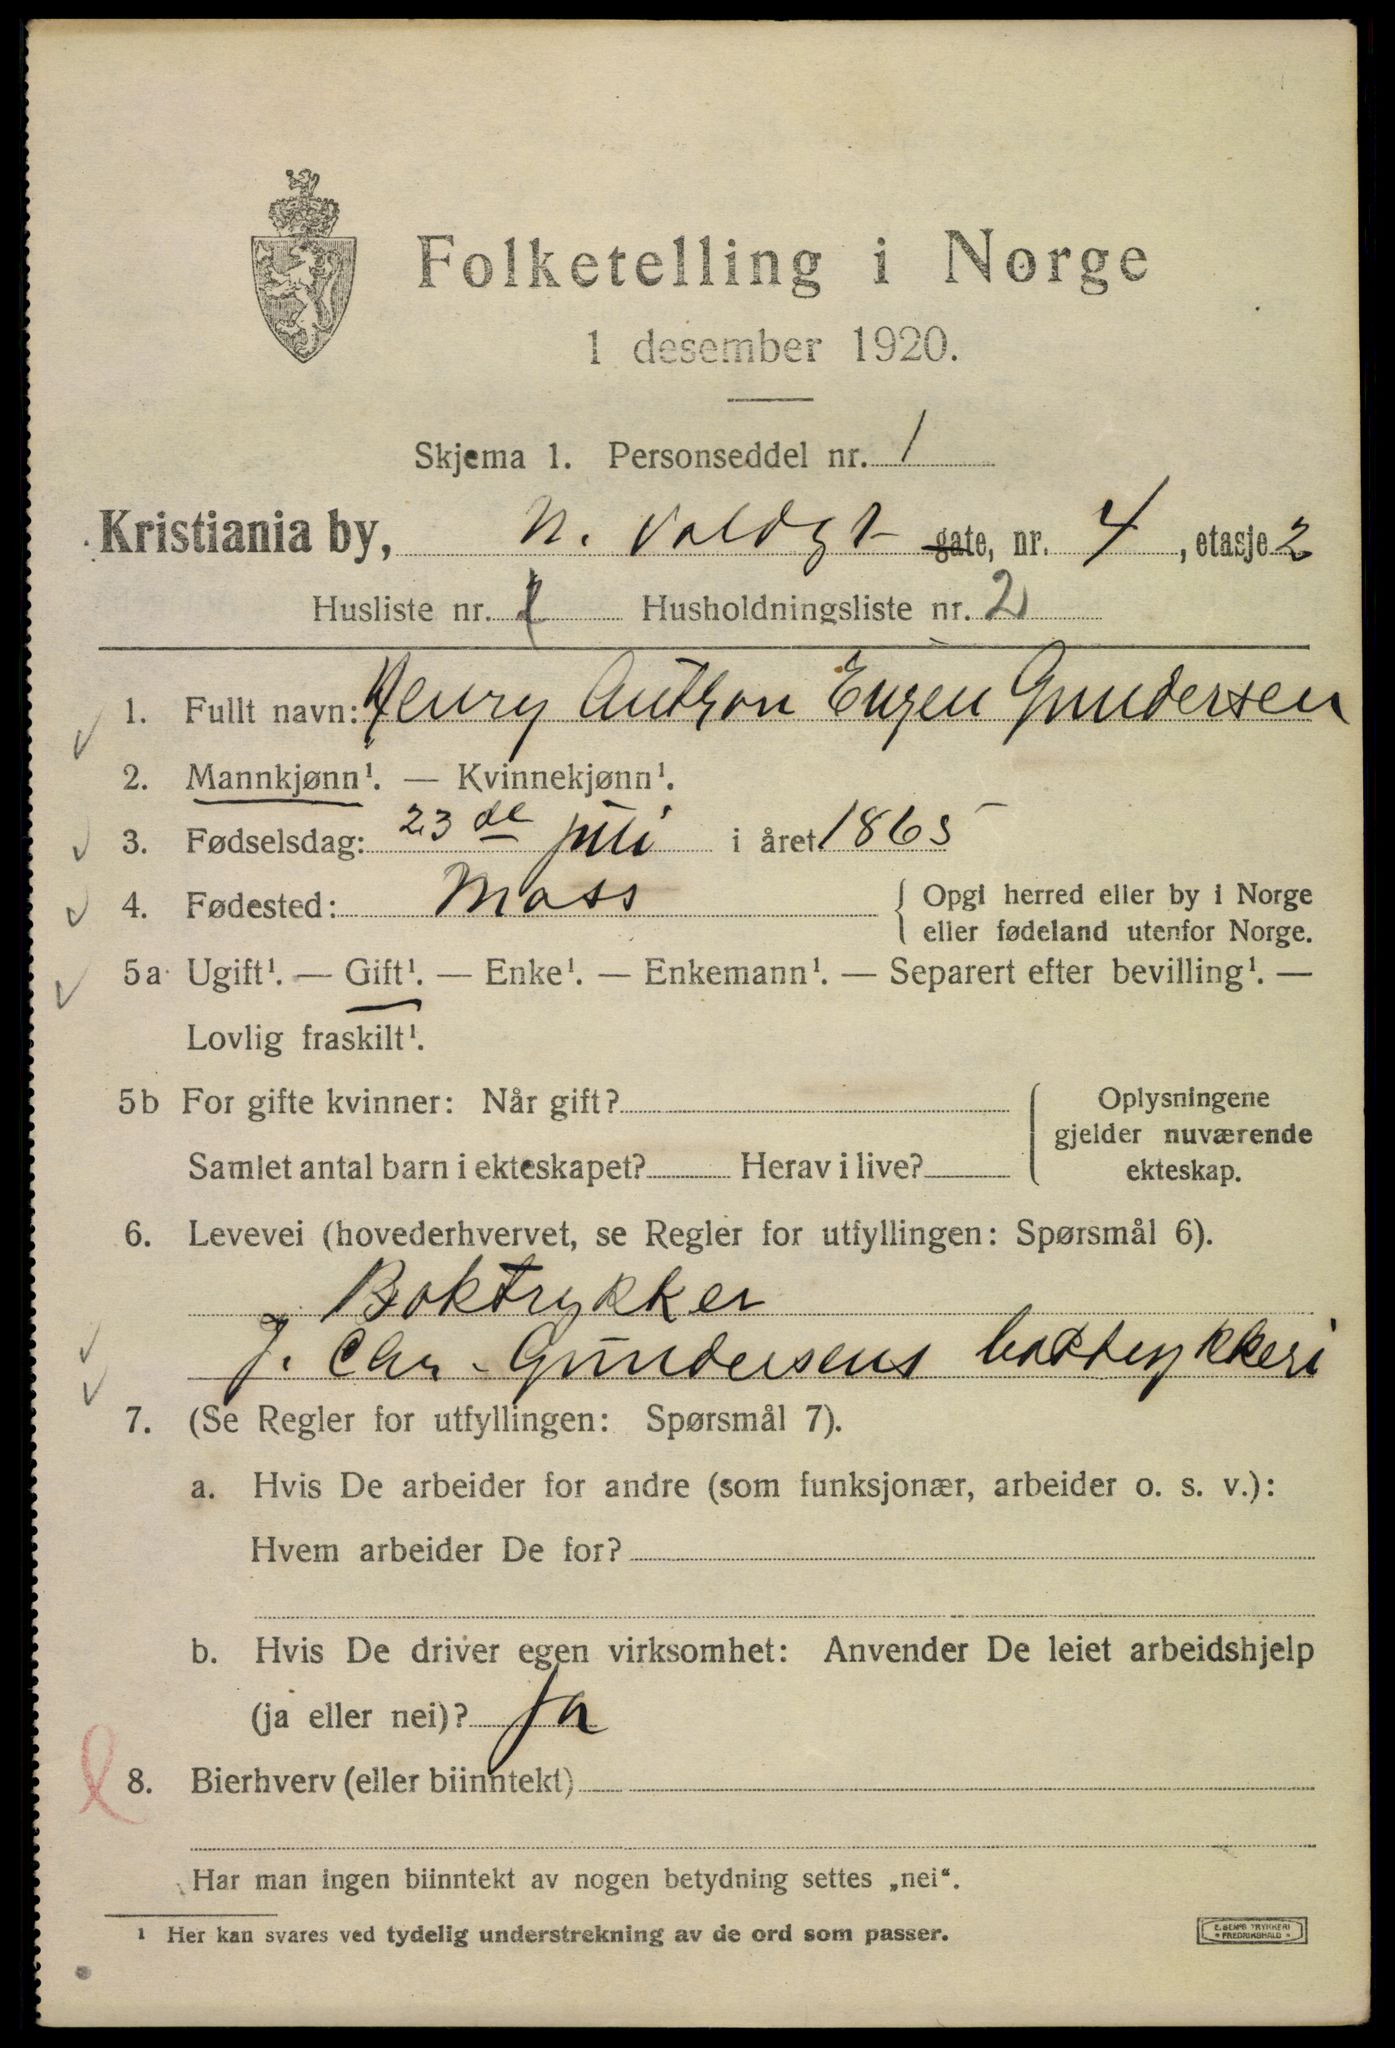 Folketelling i Norge
1 desember 1920.
Skjema 1. Personseddel nr. 1
Kristiania by, N. Voldgt gate, nr. 4, etasje 2
Husliste nr. 1 Husholdningsliste nr. 2
1. Fullt navn: Henry Anthon Eugen Gundersen
2. Mannkjønn¹. — Kvinnekjønn¹.
3. Fødselsdag: 23 de juli i året 1865
4. Fødested: Moss { Opgi herred eller by i Norge
eller fødeland utenfor Norge.
5a Ugift¹. — Gift¹. — Enke¹. — Enkemann¹. — Separert efter bevilling¹. —
Lovlig fraskilt¹.
5b For gifte kvinner: Når gift? { Oplysningene
gjelder nuværende
Samlet antal barn i ekteskapet? Herav i live? ekteskap.
6. Levevei (hovederhvervet, se Regler for utfyllingen: Spørsmål 6).
Boktrykker
J. Chr. Gundersens boktrykkeri
7. (Se Regler for utfyllingen: Spørsmål 7).
a. Hvis De arbeider for andre (som funksjonær, arbeider o. s. v.):
Hvem arbeider De for?
b. Hvis De driver egen virksomhet: Anvender De leiet arbeidshjelp
(ja eller nei)? Ja
8. Bierhverv (eller biinntekt)
Har man ingen biinntekt av nogen betydning settes „nei“.
¹ Her kan svares ved tydelig understrekning av de ord som passer.
E. SEMS TRYKKERI
* FREDRIKSHALD *